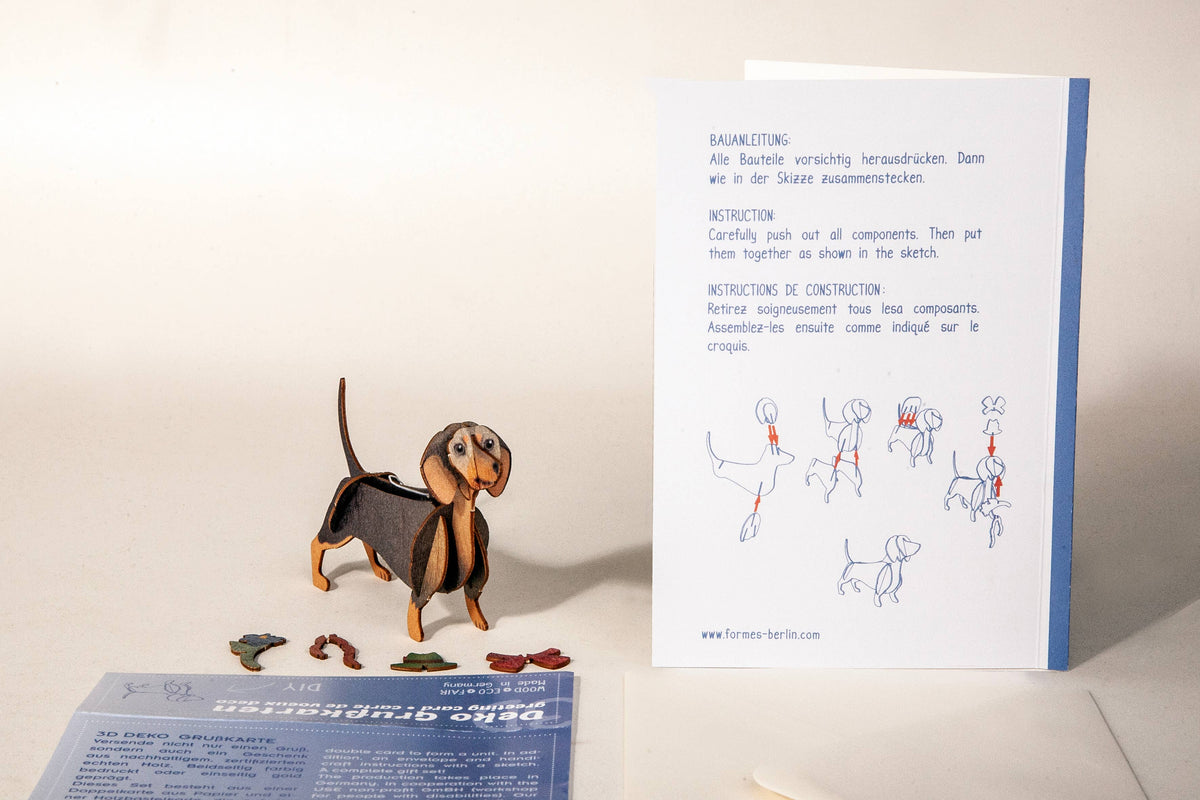 BAUANLEITUNG:
Alle Bauteile vorsichtig herausdrücken. Dann
wie in der Skizze zusammenstecken.
INSTRUCTION:
Carefully push out all components. Then put
them together as shown in the sketch.
INSTRUCTIONS DE CONSTRUCTION:
Retirez soigneusement tous lesa composants.
Assemblez-les ensuite comme indiqué sur le
croquis.
www.formes-berlin.com
DIY
WOOD ECO FAIR
Made in Germany
Deko Grußkarten
greeting card • carte de voeux deco
3D DEKO GRUßKARTE
Versende nicht nur einen Gruß,
sondern auch ein Geschenk
aus nachhaltigem, zertifiziertem
echten Holz. Beidseitig farbig
bedruckt oder einseitig gold
geprägt.
Dieses Set besteht aus einer
Doppelkarte aus Papier und ei-
ner Holzbastelkarte
double card to form a unit. In ad-
dition, an envelope and handi-
craft instructions with a sketch.
A complete gift set!
The production takes place in
Germany, in cooperation with the
USE non-profit GmbH (workshop
for people with disabilities). Our